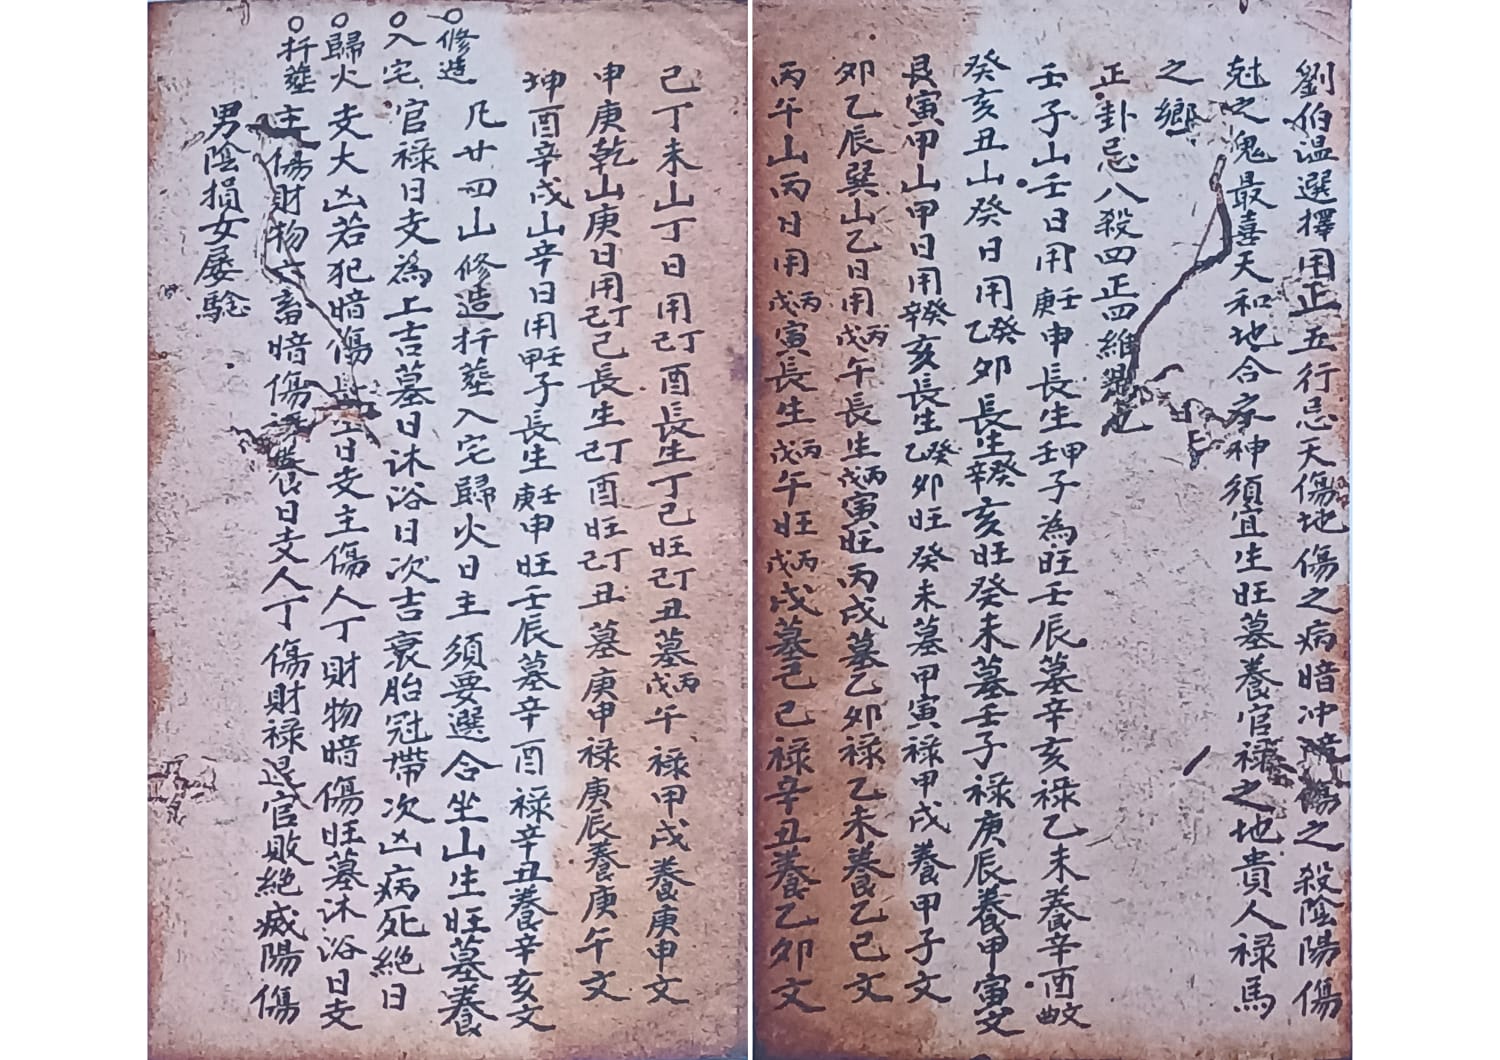 劉伯温選擇用正五行忌天傷地傷之病暗冲傷之殺陰陽傷
尅之鬼最喜天和地合家神須宜生旺墓養官禄之地貴人禄馬
之鄉
正卦忌八殺四正四維
壬子山壬日用庚壬申長生壬甲子為旺壬辰墓辛亥禄乙未養辛酉文曲
癸亥丑山癸日用乙癸卯長生辛癸亥旺癸未墓壬子禄庚辰養甲寅文
艮寅甲山甲日用辛癸亥長生乙癸卯旺癸未墓甲寅禄甲戌養甲子文
卯乙辰巽山乙日用戊丙午長生戊丙寅旺丙戌墓乙卯禄乙未養乙巳文
丙午山丙日用戊丙寅長生戊丙午旺戊丙戌墓己巳禄辛丑養乙卯文
己丁未山丁日用己丁酉長生丁己旺己丁丑墓戊丙午禄甲戌養庚申文
申庚乾山庚日用己丁己長生己丁酉旺己丁丑墓庚申禄庚辰養庚午文
坤酉辛戌山辛日用甲壬子長生庚壬申旺壬辰墓辛酉禄辛丑養辛亥文
○修造
凡廿四山修造扦塟入宅歸火日主須要選合坐山生旺墓養
○入宅
官禄日支為上吉墓日沐浴日次吉衰胎冠帶次凶病死絶日
○歸火
支大凶若犯暗傷日支主傷人丁財物暗傷旺墓沐浴日支
○扦塟
主傷財物六畜暗傷養日支人丁傷財禄退官敗絶滅陽傷
男陰損女屡騐